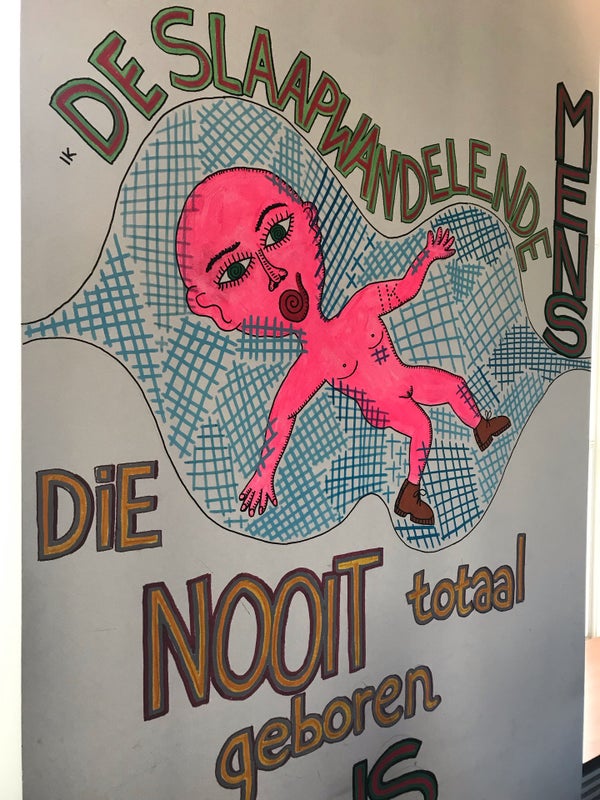 IK
DE SLAAPWANDELENDE
MENS
DiE
NOOiT totaal
geboren
IS